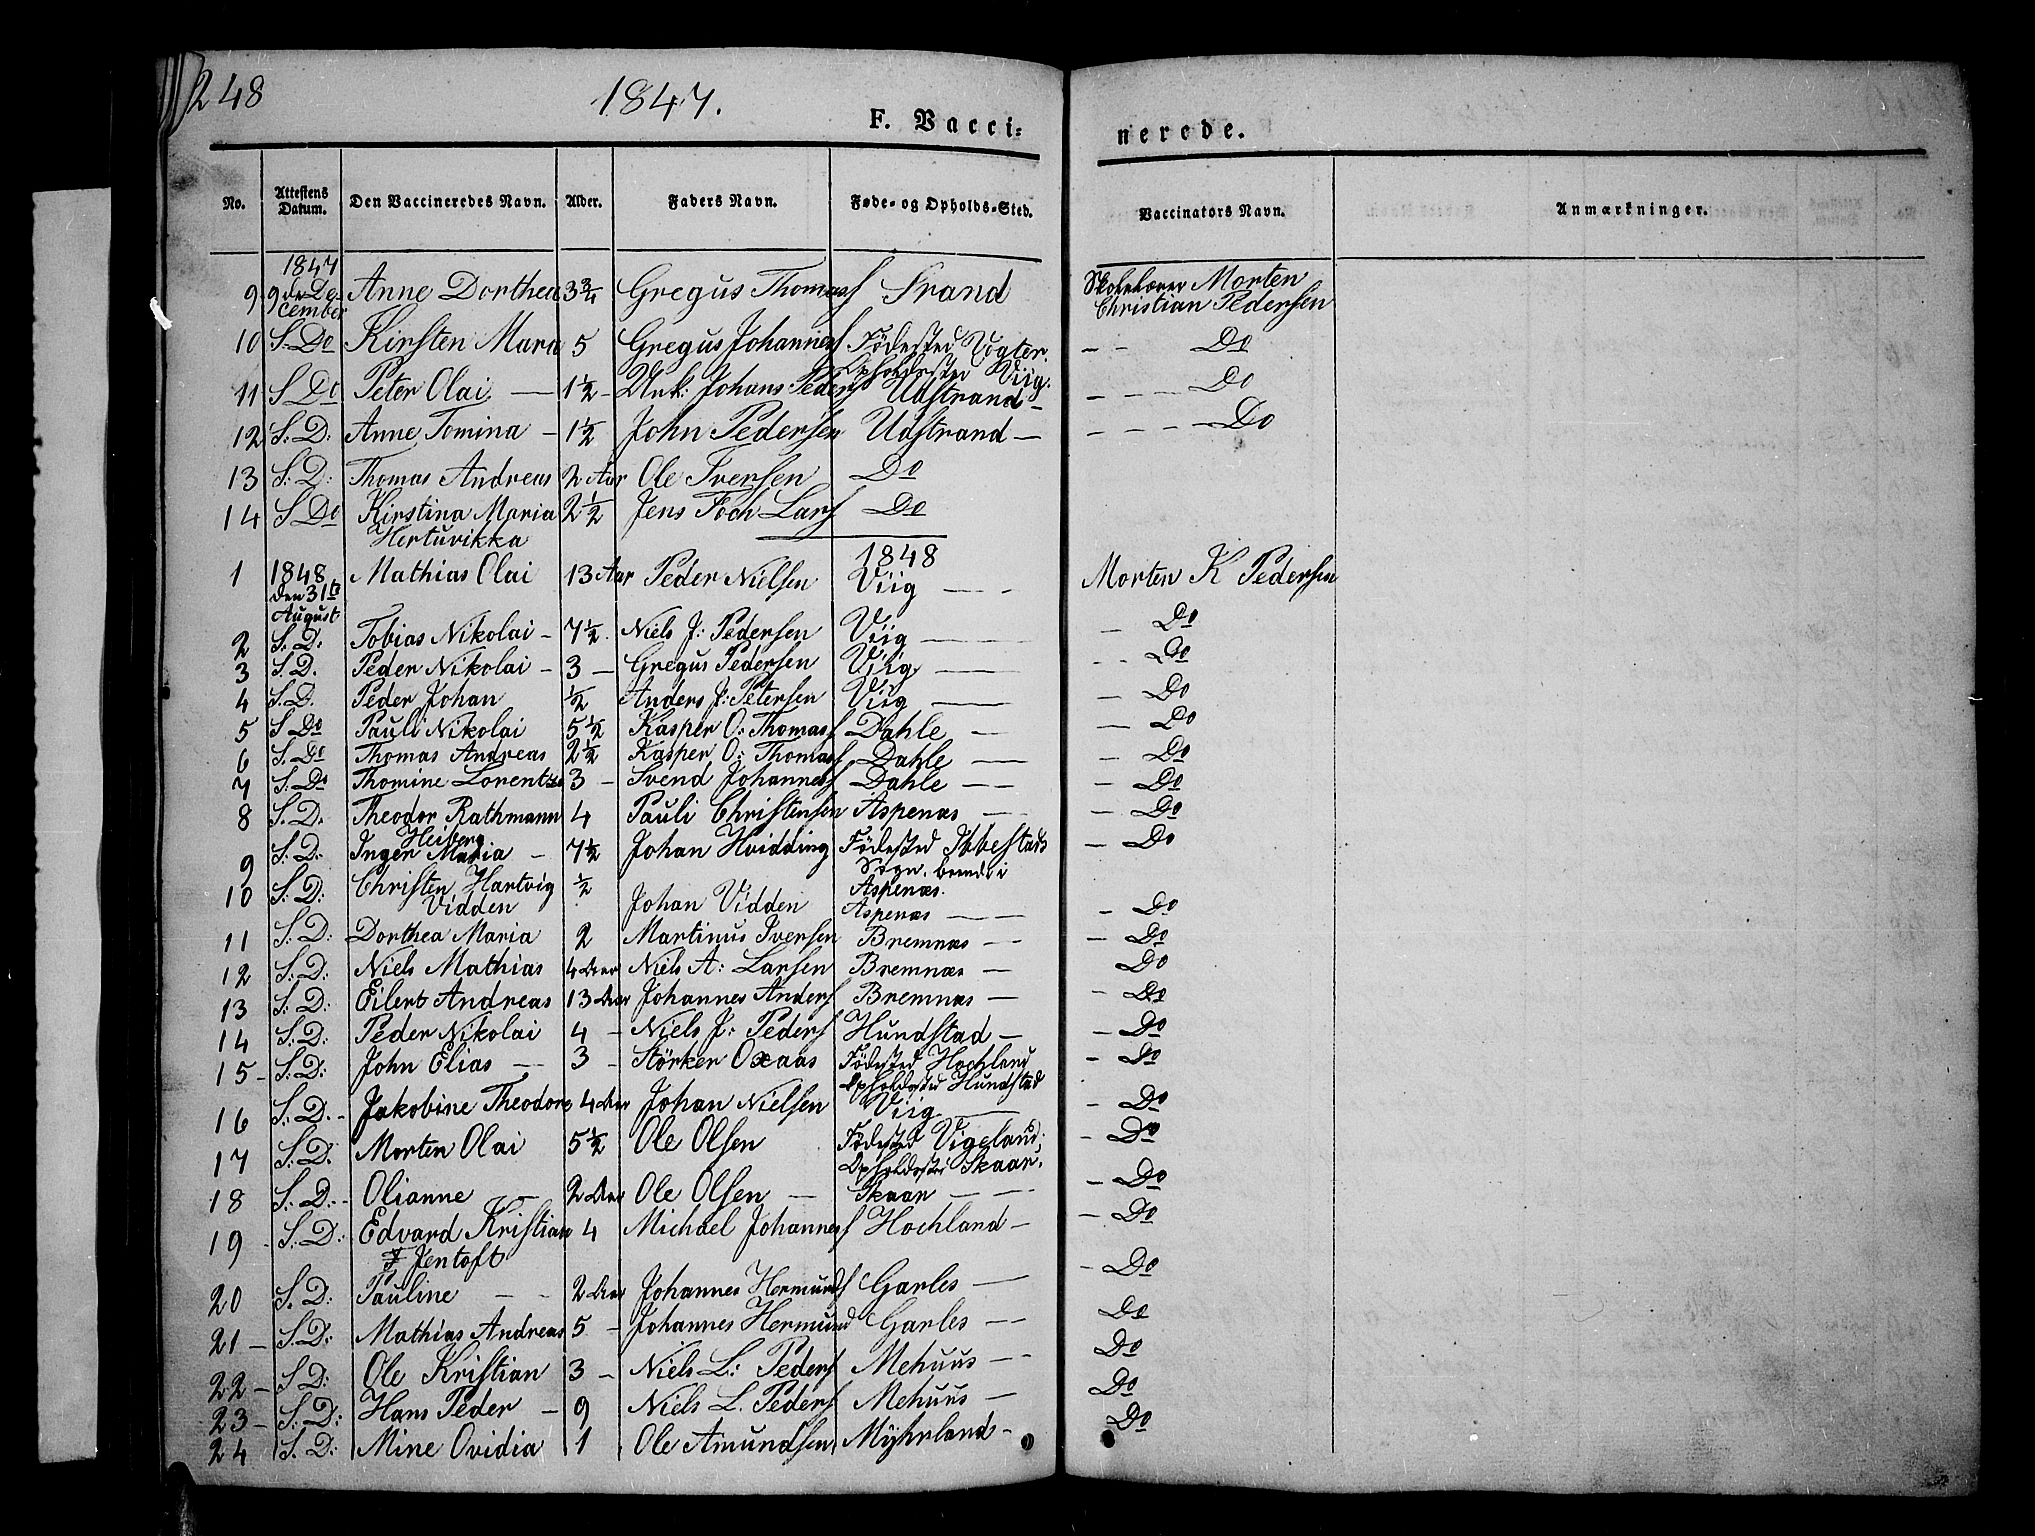 248
1847.
F. Vacci=
nerede.
No. Attestens Datum. Den Vaccineredes Navn. Alder. Faders Navn. Føde- og Opholds-Sted. Vaccinators Navn. Anmærkninger.
1847
9 9de De- Anne Dorthea 3¾ Gregus Thomass Strand Morten
cember Christian Pedersen
10 S: Do Kirsten Maria 5 Gregus Johannes Födested Vogter. - - Do
Opholdssted Viig.
11 S Do Peter Olai. — 1½ - Unk: Johans Peders Udstrand - - - - Do
12 S: D: Anne Tomina - 1½ John Pedersen Udstrand — - - - - Do
13 S: D: Thomas Andreas 2 Aar Ole Iversen Do
14 S Do Kirstina Maria 2½ Jens Foch Lars Do
Hertuvikka
1848
1 1848 Mathias Olai 13 Aar Peder Nielsen Viig - - - Morten K Pedersen
den 31te
August
2 S. D. Tobias Nikolai - 7½ Niels J: Pedersen Viig - Do
3 S. D. Peder Nikolai - 3 - Gregus Pedersen Viig - - Do
4 S. D. Peder Johan ½ Anders J: Petersen Viig - Do
5 S Do Pauli Nikolai 5½ Kasper O: Thomass Dahle - - Do
6 S. Do Thomas Andreas 2½ Kasper O: Thomass Dahle - - Do
7 S. Do Thomine 3 - Svend Johannes Dahle - - - Do
8 S. D. Theodor Rathmann 4 Pauli Christensen Aspenæs - - - Do
Heiberg
9 S: D: Inger Maria - 7½ Johan Hvidding Födested Ibbestads - Do
Sogn.
10 S: D: Christen Hartvig ½ Aspenæs.
Vidden Johan Vidden Aspenæs - - - - Do
11 S: D: Dorthea Maria 2 Martinus Iversen Bremnæs - - - Do
12 S: D: Niels Mathias 4 Aar Niels A: Larsen Bremnæs - Do
13 S: D: Eilert Andreas 13 Aar Johannes Anders Bremnæs - - Do
14 S: D: Peder Nikolai 4 - Niels J: Peders Hundstad - - Do
15 - S: D: John Elias - - 3 - Störker Oxaas Födested Hochland - Do
Opholdssted Hundstad
16 S: D. - Jakobine Theodora 4 Aar Johan Nielsen Viig - Do
17 S: D. Morten Olai 5½ Ole Olsen Födested Vigeland; - Do
Opholdssted Skaar.
18 S: D. - Olianne - 2 Aar Ole Olsen - Skaar - - - Do
19 - S: D: Edvard Kristian 4 Michael Johannes Hochland - - Do
Jentoft
20 S. D: Pauline - - 2 Aar Johannes Hermunds Garles - - Do
21 - S: D: Mathias Andreas 5 - Johannes Hermund Garles - - Do
22 - S D: Ole Kristian 3 - Niels L: Peders Mehuus - - Do
23 - S: D: Hans Peder - 9 Niels L. Peders Mehuus - Do
24 S. D: Mine Ovidia 1 Ole Amundsen Myhrland - Do